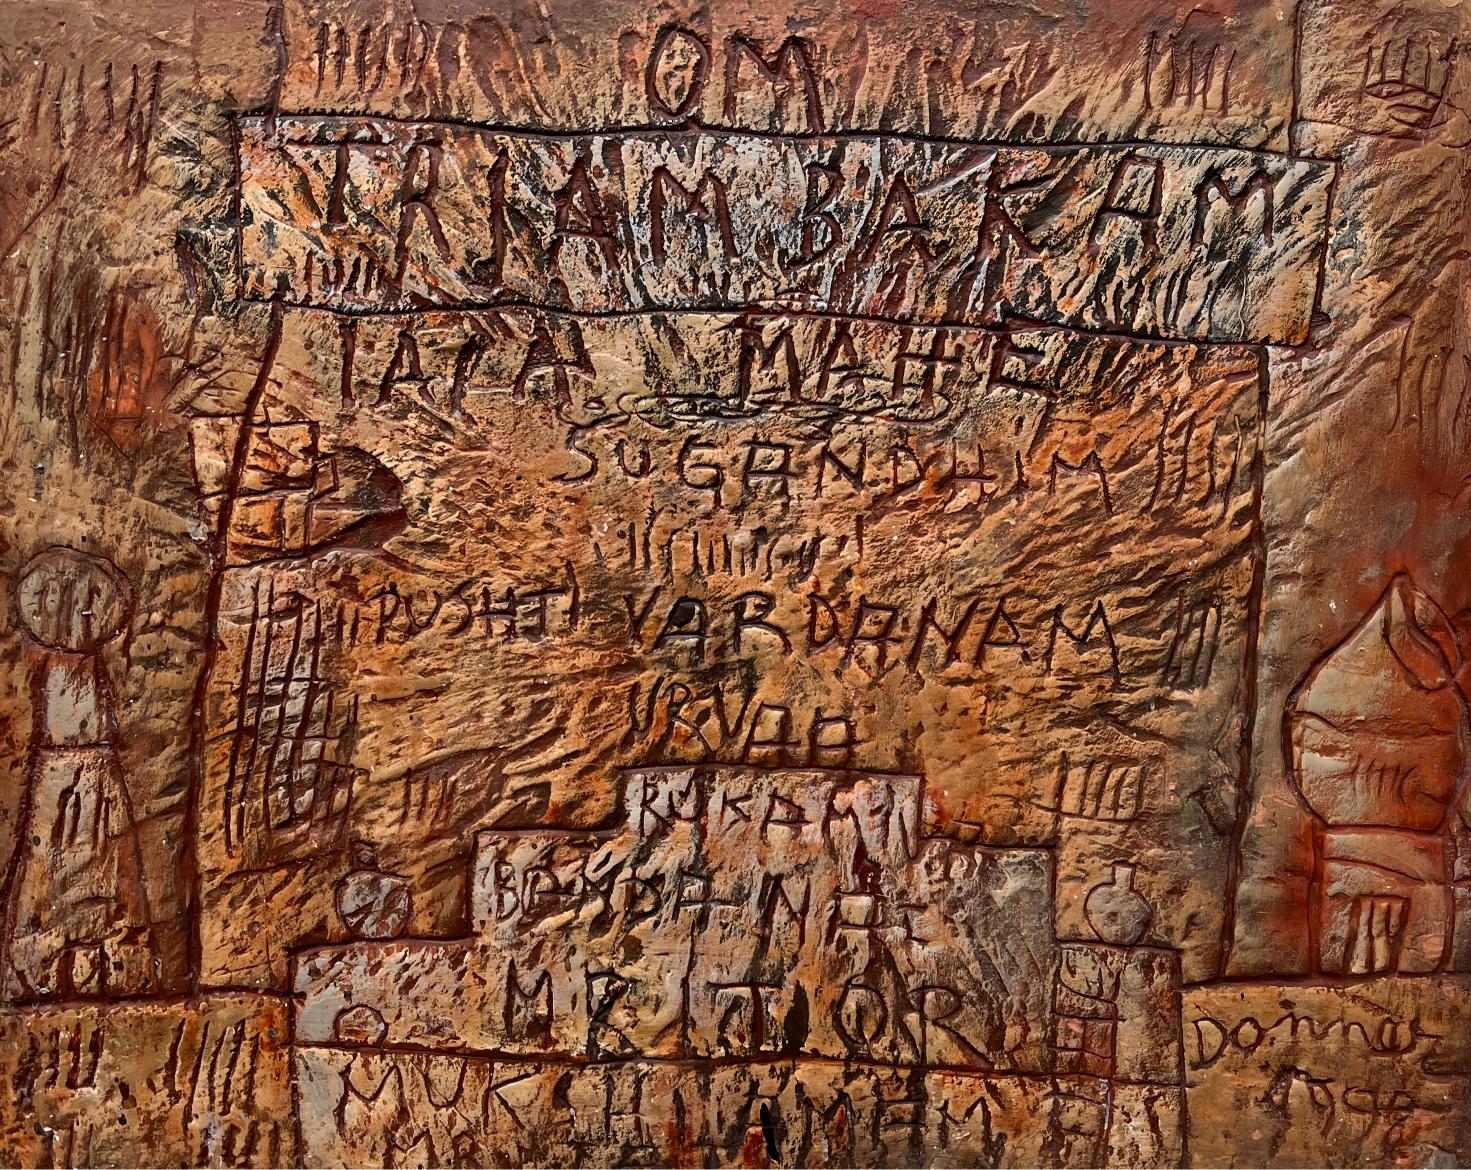 OM
TRIAMBAKAM
MAHE
SUGANDHIM
PUSHTI VARDANAM
URVAA
RUKAMI
BANDANAE
MRITOR
MUK
Donna
1992